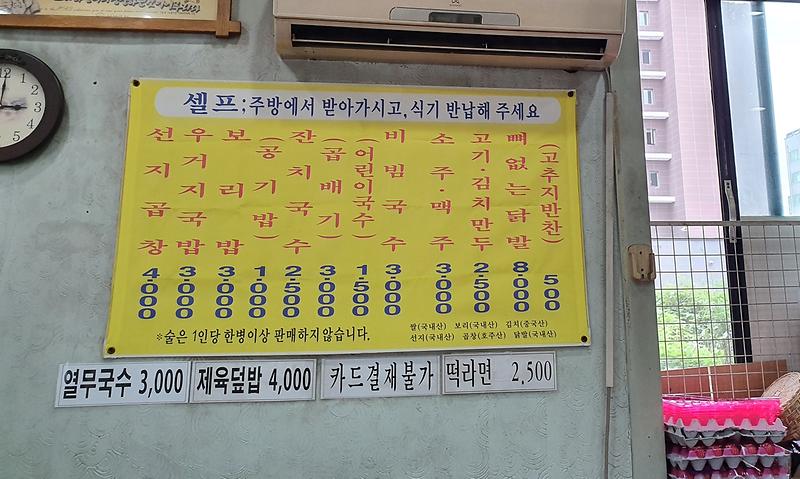 셀프;주방에서 받아가시고,식기 반납해 주세요
선지곱창 4.000
우거지국밥 3.000
보리밥 3.000
(공기밥) 1.000
잔치국수 2.500
(곱배기) 3.000
(어린이국수) 1.500
비빔국수 3000
소주·맥주 3000
고기·김치만두 2.500
뼈없는닭발 8000
(고추지반찬) 500
*술은 1인당 한병이상 판매하지않습니다.
쌀(국내산) 보리(국내산) 김치(중국산)
선지(국내산) 곱창(호주산) 닭발(국내산)
열무국수 3,000
제육덮밥 4,000
카드결재불가
떡라면 2.500
12
1
2
3
4
5